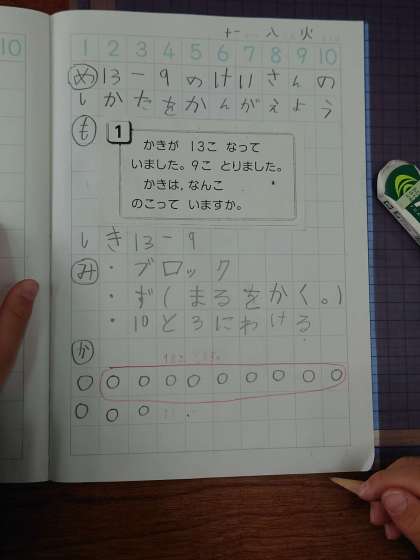 十一 八 火
1 2 3 4 5 6 7 8 9 10
め 13-9のけいさんの
しかたをかんがえよう
も 1
かきが 13こ なって
いました。9こ とりました。
かきは,なんこ
のこって いますか。
しき 13-9
み・ブロック
・ず(まるをかく。)
・10と3にわける
か
10